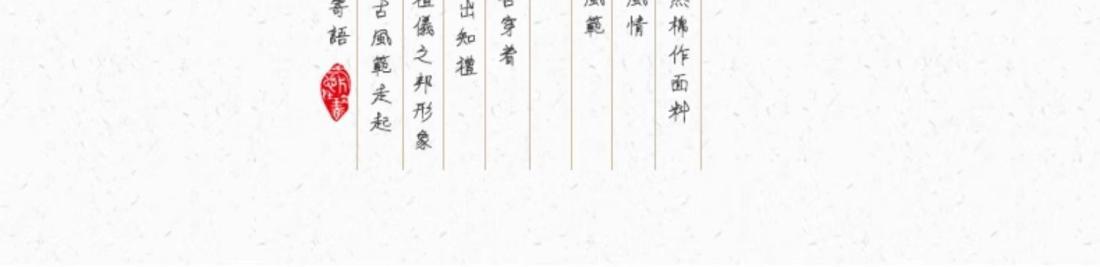 棉作面料
風情
風範
穿着
出知禮
儀之邦形象
古風範走起
寄語